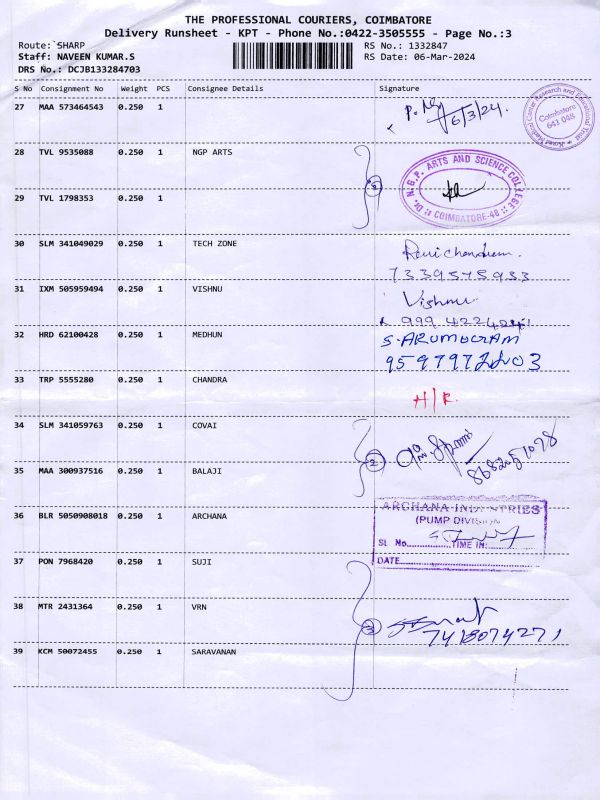 THE PROFESSIONAL COURIERS, COIMBATORE
Delivery Runsheet - KPT - Phone No.:0422-3505555 - Page No.:3
Route: SHARP RS No.: 1332847
Staff: NAVEEN KUMAR.S RS Date: 06-Mar-2024
DRS No.: DCJB133284703
S No Consignment No Weight PCS Consignee Details Signature
27 MAA 573464543 0.250 1
6/3/24.
Kovai Medical Center Research and Educational Trust
Coimbatore
641 048
28 TVL 9535088 0.250 1 NGP ARTS
Dr. N.G.P. ARTS AND SCIENCE COLLEGE
COIMBATORE-48
29 TVL 1798353 0.250 1
30 SLM 341049029 0.250 1 TECH ZONE Ravichandran.
7339575933
31 IXM 505959494 0.250 1 VISHNU Vishnu
32 HRD 62100428 0.250 1 MEDHUN S. ARUMUGAM
33 TRP 5555280 0.250 1 CHANDRA H/R.
34 SLM 341059763 0.250 1 COVAI
2
35 MAA 300937516 0.250 1 BALAJI
36 BLR 5050908018 0.250 1 ARCHANA ARCHANA INDUSTRIES
(PUMP DIVISION)
SL No. TIME IN:
DATE
37 PON 7968420 0.250 1 SUJI
38 MTR 2431364 0.250 1 VRN
3
7418074271
39 KCM 50072455 0.250 1 SARAVANAN